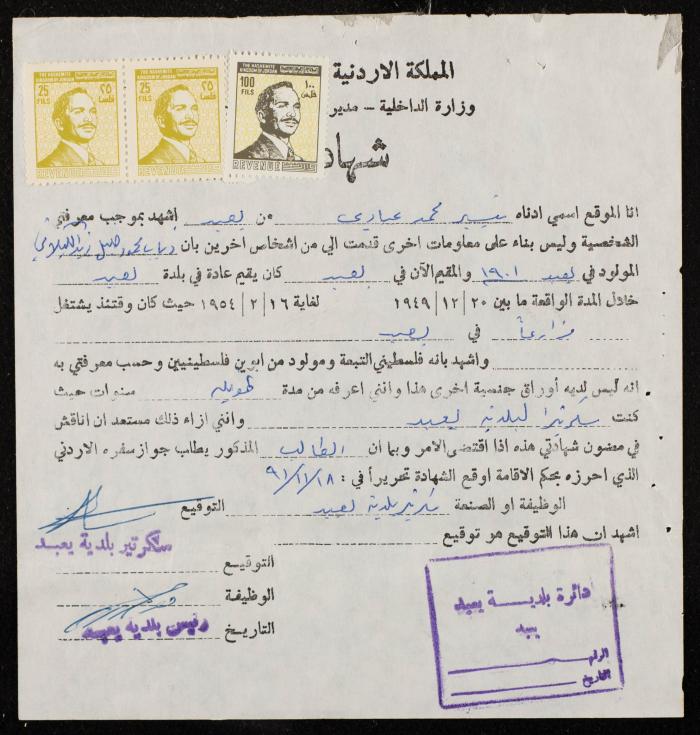 THE HASHEMITE KINGDOM OF JORDAN
25 FILS
٢٥ فلسا
REVENUE
THE HASHEMITE KINGDOM OF JORDAN
25 FILS
٢٥ فلسا
REVENUE
THE HASHEMITE KINGDOM OF JORDAN
100 FILS
١٠٠ فلس
REVENUE
المملكة الاردنية
وزارة الداخلية – مدير
شهاد
انا الموقع اسمي ادناه تيسير محمد عبادي من يعبد اشهد بموجب معرفتي
الشخصية وليس بناء على معلومات اخرى قدمت الي من اشخاص اخرين بان
المولود في يعبد ١٩٠١ والمقيم الآن في يعبد كان يقيم عادة في بلدة يعبد
خلال المدة الواقعة ما بين ٢٠ / ١٢ / ١٩٤٩ لغاية ١٦ / ٢ / ١٩٥٤ حيث كان وقتئذ يشتغل
مزارعاً في يعبد
واشهد بانه فلسطيني التبعة ومولود من ابوين فلسطينيين وحسب معرفتي به
انه ليس لديه أوراق جنسية اخرى هذا وانني اعرفه من مدة طويلة سنوات حيث
كنت سكرتيرا لبلدية يعبد وانني ازاء ذلك مستعد ان اناقش
في مضمون شهادتي هذه اذا اقتضى الامر وبما ان الطالب المذكور يطلب جواز سفره الاردني
الذي احرزه بحكم الاقامة اوقع الشهادة تحريراً في : ٩١/١١/١٨
الوظيفة او الصنعة سكرتير بلدية يعبد التوقيع
سكرتير بلدية يعبد
اشهد ان هذا التوقيع هو توقيع
التوقيع
الوظيفة
التاريخ
رئيس بلدية يعبد
دائرة بلدية يعبد
يعبد
الرقم
التاريخ